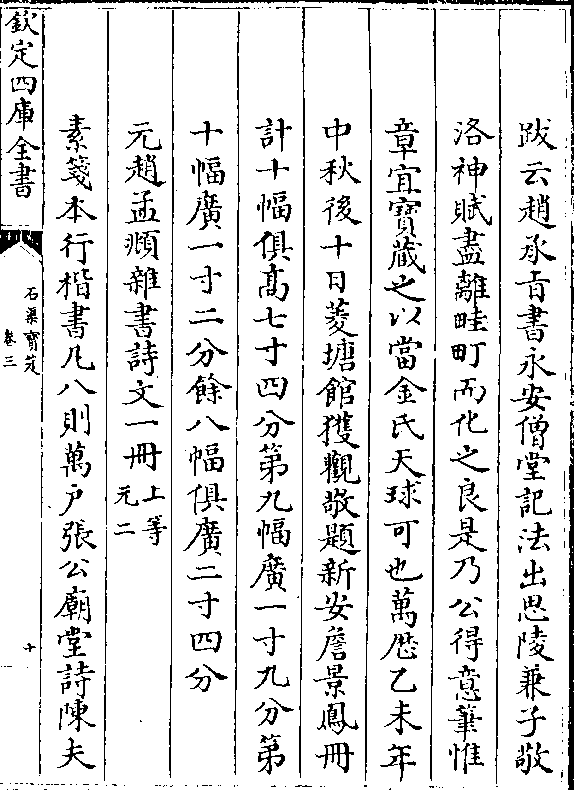 跋云趙承㫖書永安僧堂記法出思陵兼子敬
洛神賦盡離畦町而化之良是乃公得意筆惟
章宜寶蔵之以當金氏天球可也萬厯乙未年
中秋後十日菱塘館獲觀敬題新安詹景鳳冊
計十幅俱髙七寸四分第九幅廣一寸九分第
十幅廣一寸二分餘八幅俱廣二寸四分
元趙孟頫雜書詩文一冊上等
元二
素箋本行楷書凡八則萬户張公廟堂詩陳夫
欽定四庫全書
石渠寳笈
卷三
十